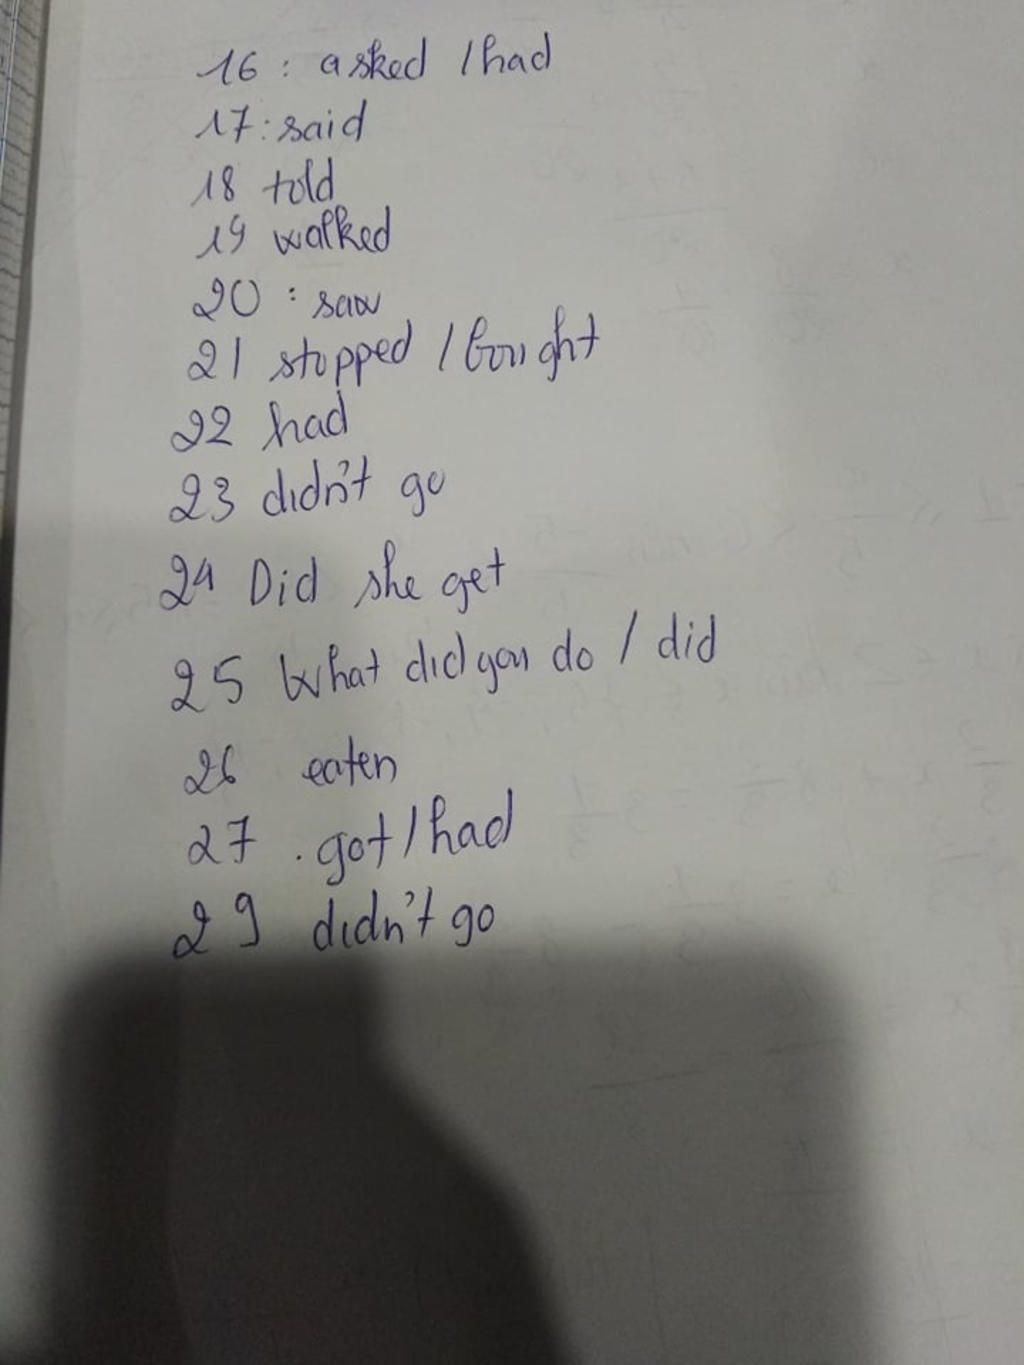 16: asked / had
17: said
18 told
19 walked
20: saw
21 stopped / bought
22 had
23 didn't go
24 Did she get
25 What did you do / did
26 eaten
27. got / had
29 didn't go